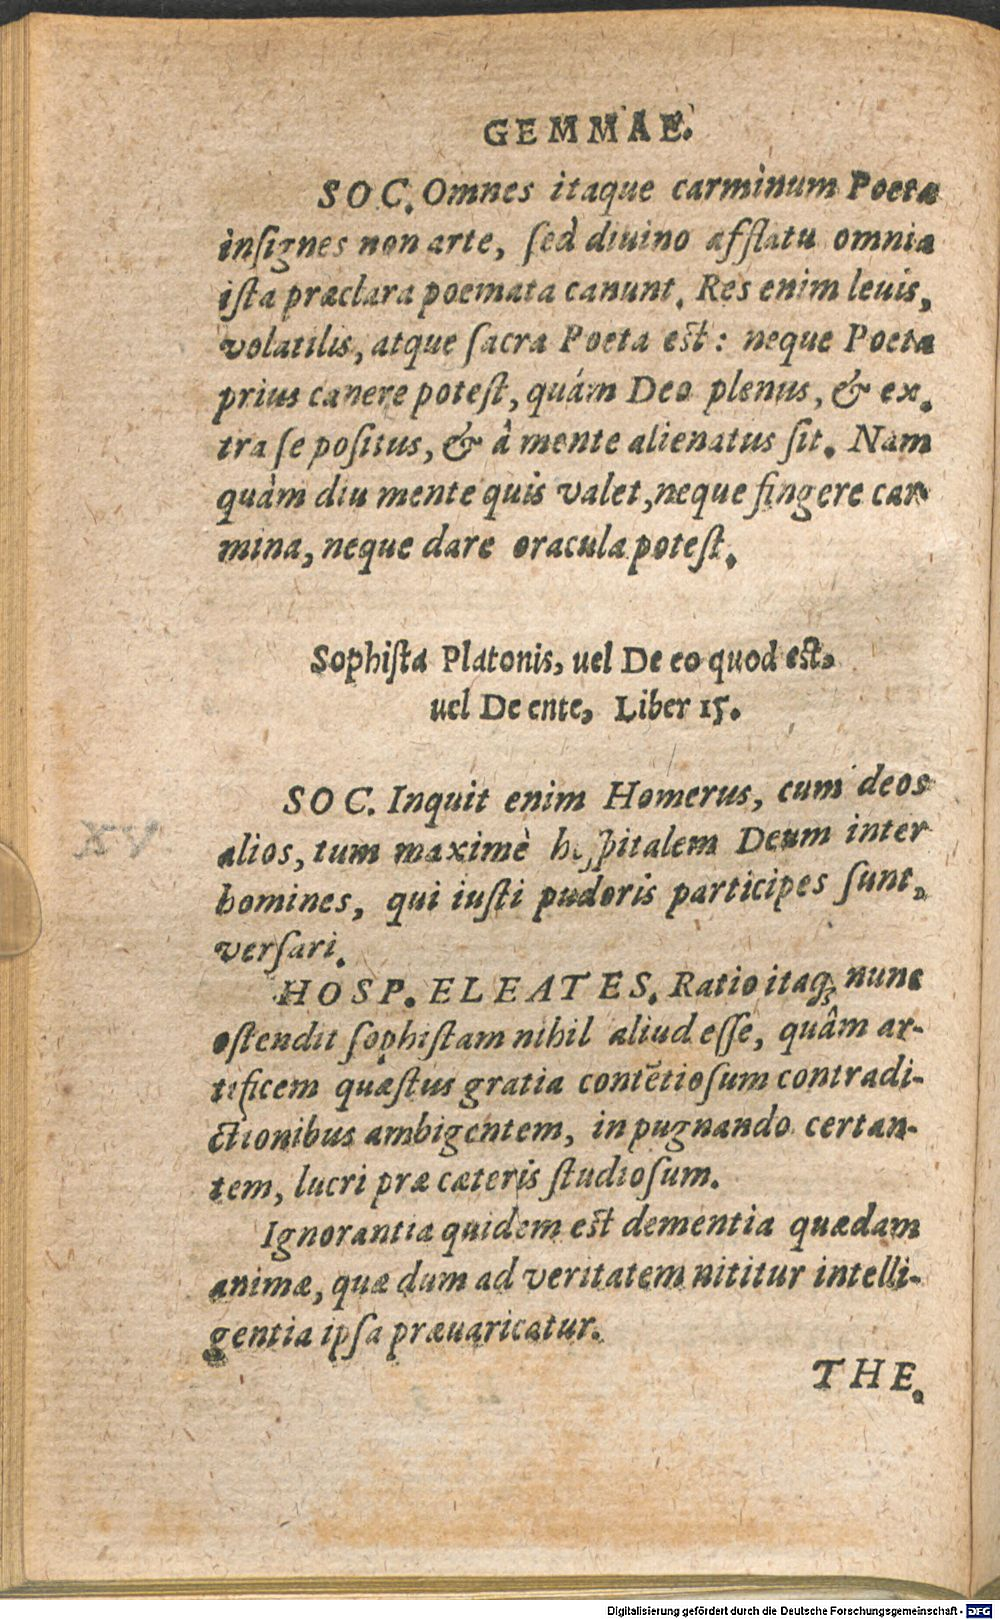 GEMMAE.
SOC. Omnes itaque carminum Poetæ
inſignes non arte, ſed diuino afflatu omnia
iſta præclara poemata canunt. Res enim leuis,
volatilis, atque ſacra Poeta eſt: neque Poeta
prius canere poteſt, quám Deo plenus, & ex-
tra ſe poſitus, & â mente alienatus ſit. Nam
quàm diu mente quis valet, neque fingere car-
mina, neque dare oracula poteſt.
Sophiſta Platonis, uel De eo quod eſt,
uel De ente, Liber 15.
SOC. Inquit enim Homerus, cum deos
alios, tum maximè hoſpitalem Deum inter
homines, qui iuſti pudoris participes ſunt,
verſari.
XV
HOSP. ELEATES. Ratio itaq; nunc
oſtendit ſophiſtam nihil aliud eſſe, quâm ar-
tificem quæſtus gratia contẽtioſum contradi-
ctionibus ambigentem, in pugnando certan-
tem, lucri præ cæteris ſtudioſum.
Ignorantia quidem eſt dementia quædam
animæ, quæ dum ad veritatem nititur intelli-
gentia ipſa præuaricatur.
THE.
Digitalisierung gefördert durch die Deutsche Forschungsgemeinschaft - DFG